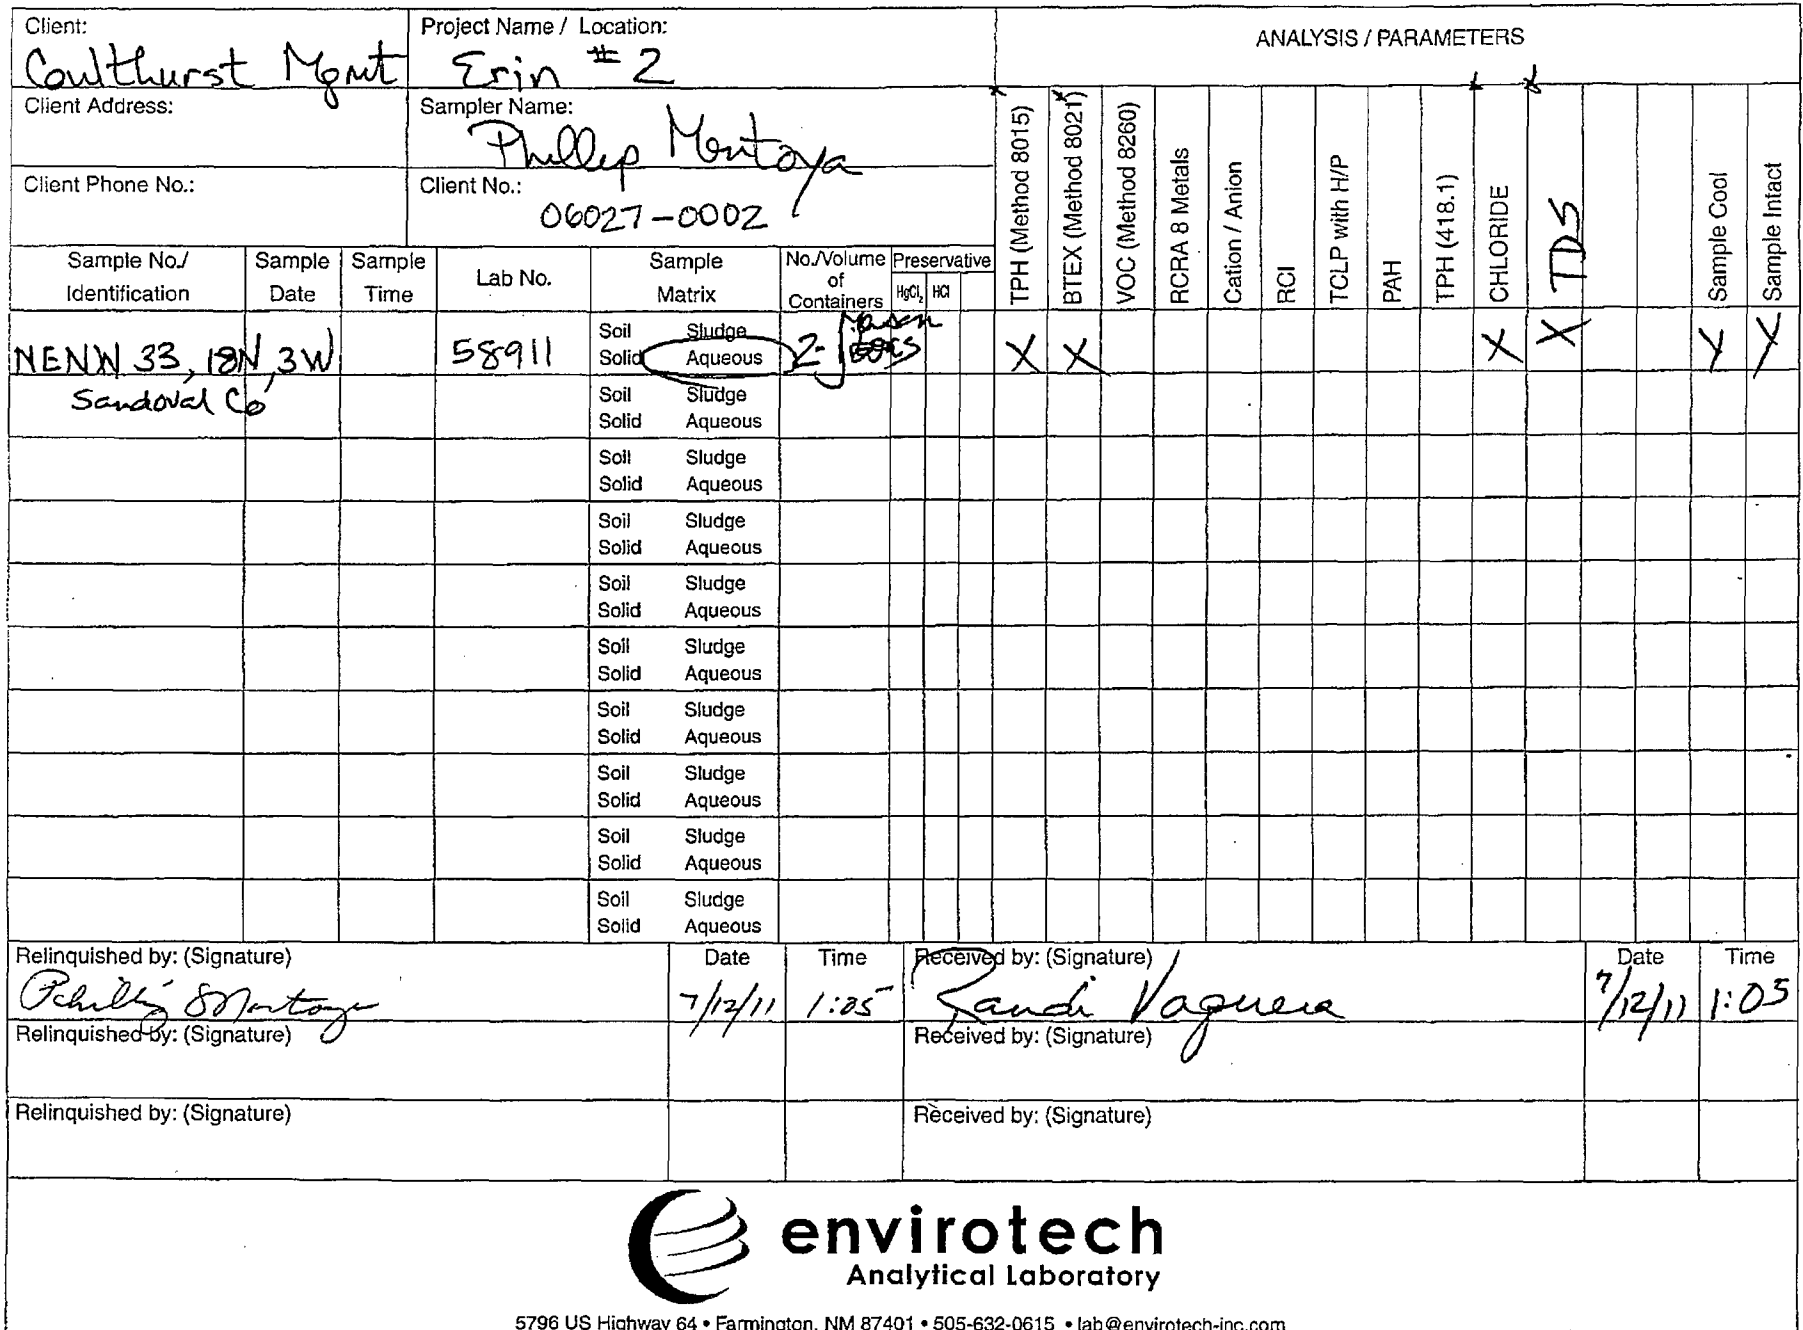 Client:
Coulthurst Mgmt
Project Name / Location:
Erin #2
ANALYSIS / PARAMETERS
Client Address:
Sampler Name:
Phillip Montoya
Client Phone No.:
Client No.:
06027-0002
Sample No./
Identification
Sample
Date
Sample
Time
Lab No.
Sample
Matrix
No./Volume
of
Containers
Preservative
HgCl₂ HCl
TPH (Method 8015)
BTEX (Method 8021)
VOC (Method 8260)
RCRA 8 Metals
Cation / Anion
RCI
TCLP with H/P
PAH
TPH (418.1)
CHLORIDE
TDS
Sample Cool
Sample Intact
NENW 33, 18N, 3W
Sandoval Co
58911
Soil Sludge
Solid Aqueous
2- Mason
X X X X Y Y
Soil Sludge
Solid Aqueous
Soil Sludge
Solid Aqueous
Soil Sludge
Solid Aqueous
Soil Sludge
Solid Aqueous
Soil Sludge
Solid Aqueous
Soil Sludge
Solid Aqueous
Soil Sludge
Solid Aqueous
Soil Sludge
Solid Aqueous
Soil Sludge
Solid Aqueous
Relinquished by: (Signature)
Phillip Montoya
Date
7/12/11
Time
1:05
Received by: (Signature)
Randi Vaquera
Date
7/12/11
Time
1:05
Relinquished by: (Signature)
Received by: (Signature)
Relinquished by: (Signature)
Received by: (Signature)
envirotech
Analytical Laboratory
5796 US Highway 64 • Farmington, NM 87401 • 505-632-0615 • lab@envirotech-inc.com